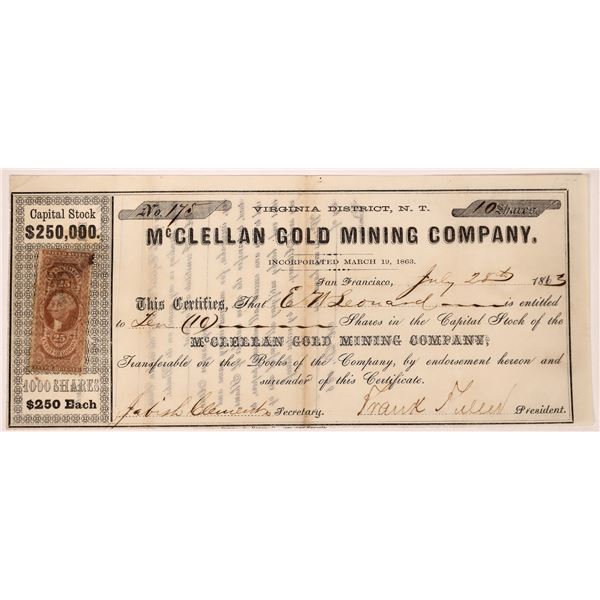 Capital Stock
$250,000.
25
1000 SHARES
$250 Each
No. 175
VIRGINIA DISTRICT, N. T.
10 Shares.
McCLELLAN GOLD MINING COMPANY.
INCORPORATED MARCH 19, 1863.
San Francisco, July 28th 1863
This Certifies, That E W Leonard is entitled
to Ten (10) Shares in the Capital Stock of the
McCLELLAN GOLD MINING COMPANY,
Transferable on the Books of the Company, by endorsement hereon and
surrender of this Certificate.
Jabish Clements Secretary.
Frank President.